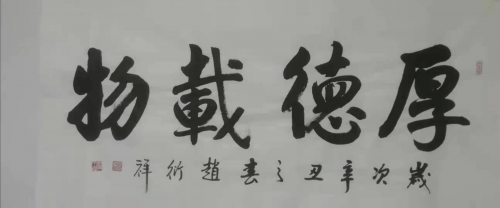 厚德載物
歲次辛丑之春趙衍祥